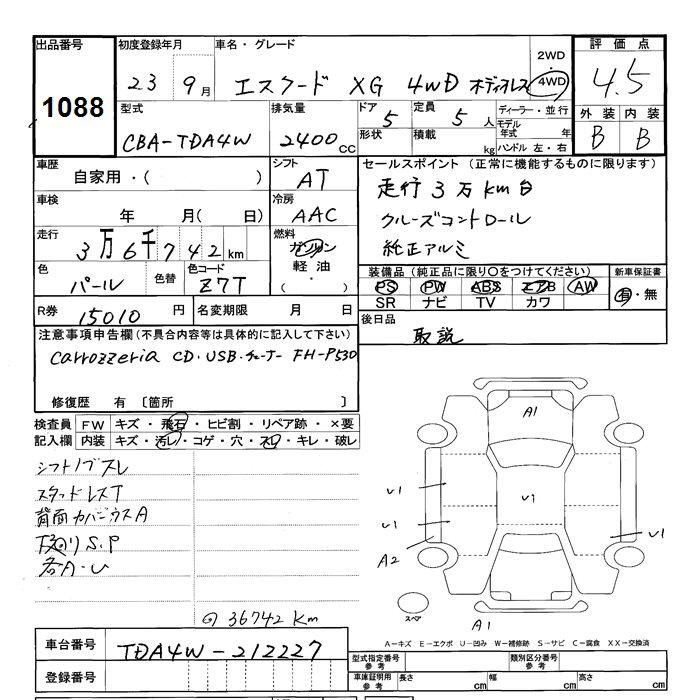 出品番号 初度登録年月 車名・グレード 評価点
1088 23 9月 エスクード XG 4WD ボディオレス 2WD 4WD 4.5
型式 排気量 ドア 5 定員 5人 ディーラー・並行 外装 内装
CBA-TDA4W 2400cc 形状 積載 kg モデル年式 年 B B
ハンドル 左・右
車歴 シフト セールスポイント (正常に機能するものに限ります)
自家用・( ) AT 走行3万km台
車検 冷房 クルーズコントロール
年 月( 日) AAC 純正アルミ
走行 燃料
3万6千742km ガソリン
軽油
( ・ )
色 色替 色コード 装備品 (純正品に限り○をつけてください) 新車保証書
パール Z7T PS PW ABS エアB AW 有・無
SR ナビ TV カワ
R券 15010円 名変期限 月 日 後日品
取説
注意事項申告欄 (不具合内容等は具体的に記入して下さい)
carrozzeria CD・USB・チューナー FH-P530
修復歴 有 〔箇所 〕
検査員 FW キズ・飛石・ヒビ割・リペア跡・×要
記入欄 内装 キズ・汚レ・コゲ・穴・スレ・キレ・破レ
シフトノブスレ
スタッドレスT
背面カバーウスA
下廻りS.P
各A・U
36742 Km
A1
U1
U1
U1
U1
A2
スペア
A1
A-キズ E-エクボ U-凹み W-補修跡 S-サビ C-腐食 XX-交換済
車台番号 TDA4W-212227
型式指定番号 参考 類別区分番号 参考
登録番号 車庫証明用 参考 長さ cm 幅 cm 高さ cm